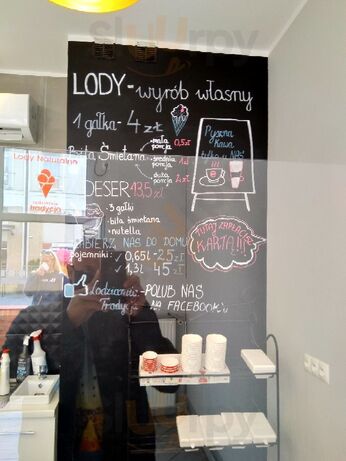 LODY - wyrób własny
1 gałka - 4 zł
Bita Śmietana - mała porcja 0,5zł
- średnia porcja 1zł
- duża porcja 2zł
DESER 13,5 zł
- 3 gałki
- bita śmietana
- nutella
ZABIERZ NAS DO DOMU
pojemniki: ✓ 0,65l - 25 zł
✓ 1,3l 45 zł
POLUB NAS
Tradycja NA FACEBOOK'u
Pyszna
Kawa
tylko u NAS
TUTAJ ZAPŁACISZ
KARTĄ!!!
Lody Naturalne
tradycja